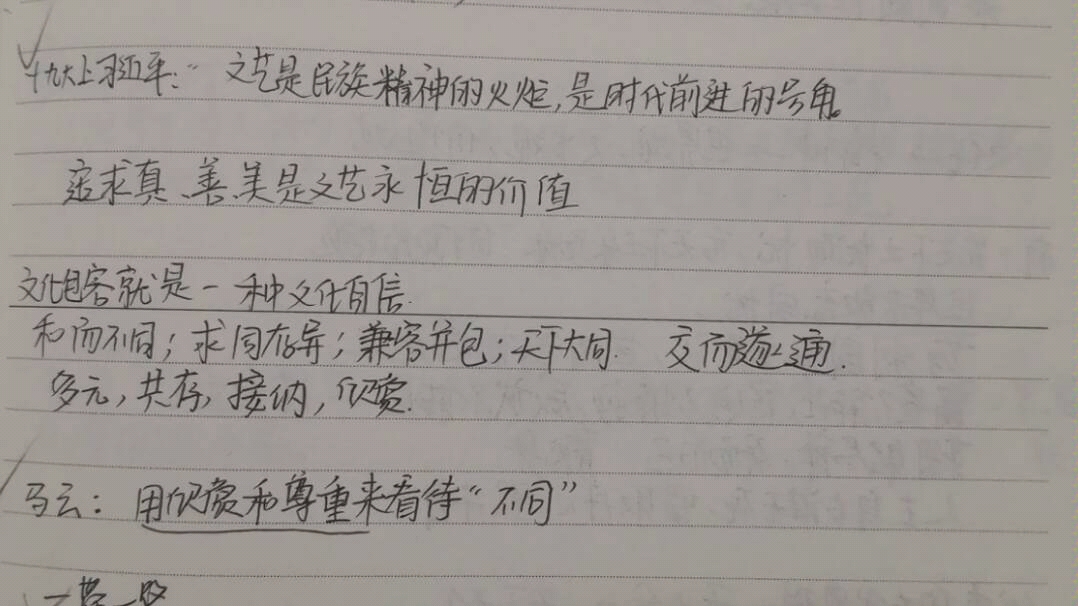 十九大上习近平：“文艺是民族精神的火炬,是时代前进的号角。
追求真、善、美是文艺永恒的价值
文化包容就是一种文化自信.
和而不同；求同存异；兼容并包；天下大同. 交而遂通.
多元,共存,接纳,欣赏.
马云：用欣赏和尊重来看待“不同”
一带一路